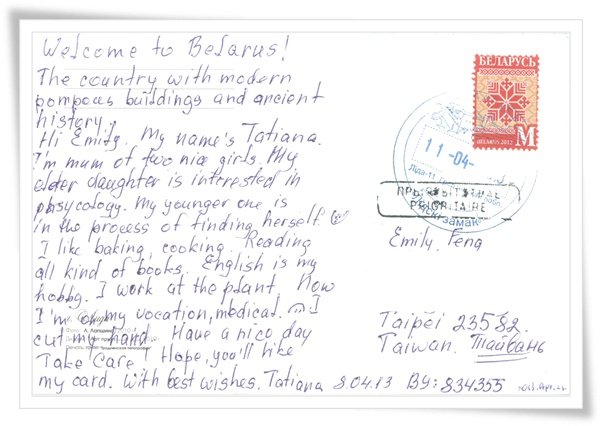 Welcome to Belarus!
The country with modern
pompous buildings and ancient
history.
Hi Emily. My name's Tatiana.
I'm mum of two nice girls. My
elder daughter is interested in
phsycology. My younger one is
in the process of finding herself.
I like baking, cooking. Reading
all kind of books. English is my
hobby. I work at the plant. Now
I'm on my vocation, medical. I
cut my hand. Have a nice day
Take Care! Hope, you'll like
my card. With best wishes. Tatiana 8.04.13 BY: 834355
БЕЛАРУСЬ
M
BELARUS 2012
11-04-
ПРЫЯРЫТЭТНАЕ
PRIORITAIRE
Emily, Feng
Taipei 23582
Taiwan. Тайвань